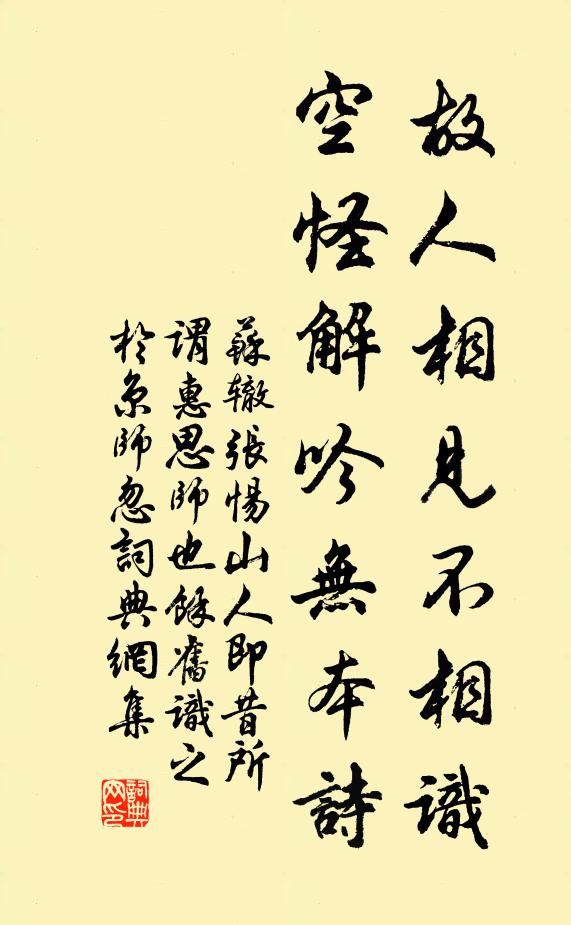 故人相見不相識
空怪解吟無本詩
蘇轍張惕山人即昔所
謂惠思師也餘舊識之
於京師忽詞典網集
詞典
网印